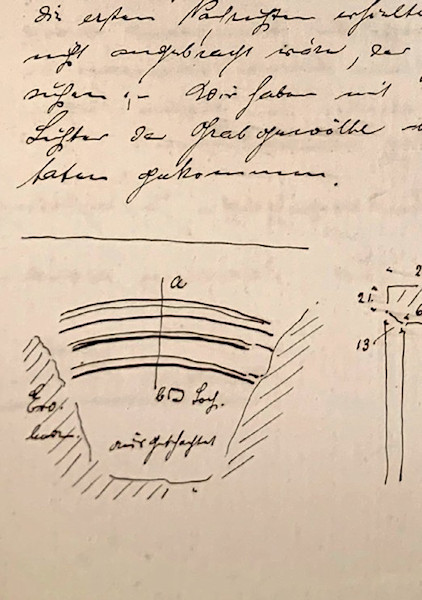 die ersten Nachrichten erhielte
nicht angebracht wäre, der
ruhen; – Wir haben mit
Lichter der Grabgewölbe
taten gekommen.
a
2
21
6
13
b Loch.
Erd-
ausgeschachtet